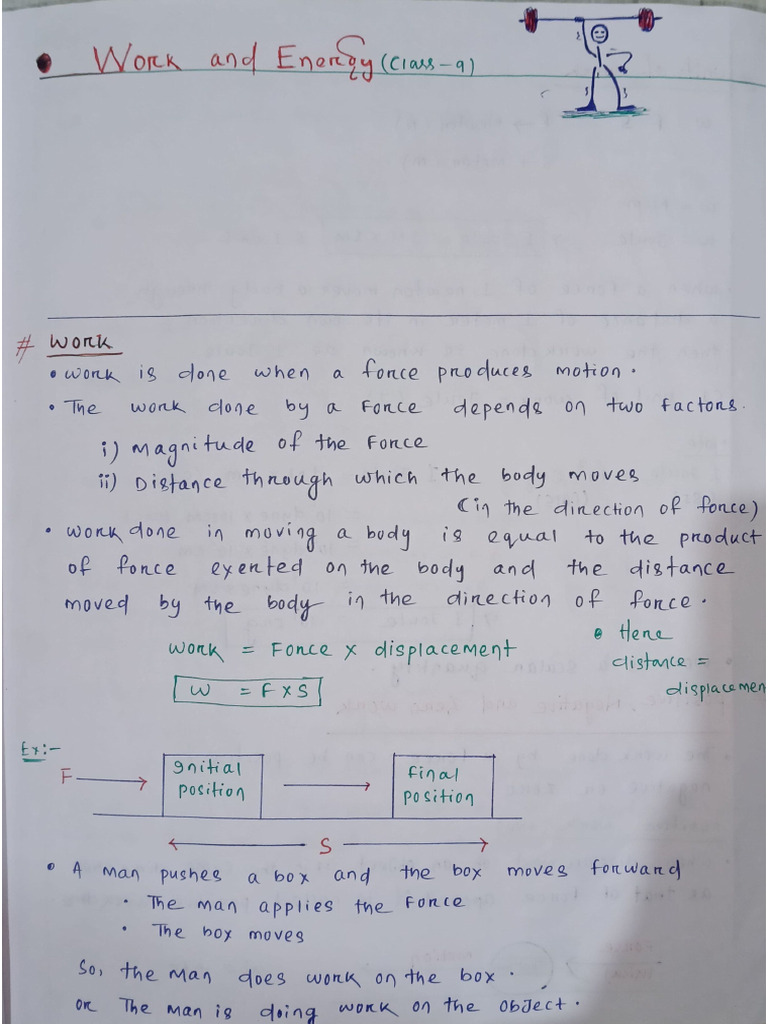 • Work and Energy (Class-9)
# Work
• Work is done when a force produces motion.
• The work done by a Force depends on two factors.
i) Magnitude of the Force
ii) Distance through which the body moves
(in the direction of force)
• Work done in moving a body is equal to the product
of force exerted on the body and the distance
moved by the body in the direction of force.
Work = Force × displacement
W = F × S
• Here
distance =
displacemen
Ex:-
F
Initial
position
Final
position
S
• A man pushes a box and the box moves forward
• The man applies the Force
• The box moves
So, the man does work on the box.
or The man is doing work on the object.